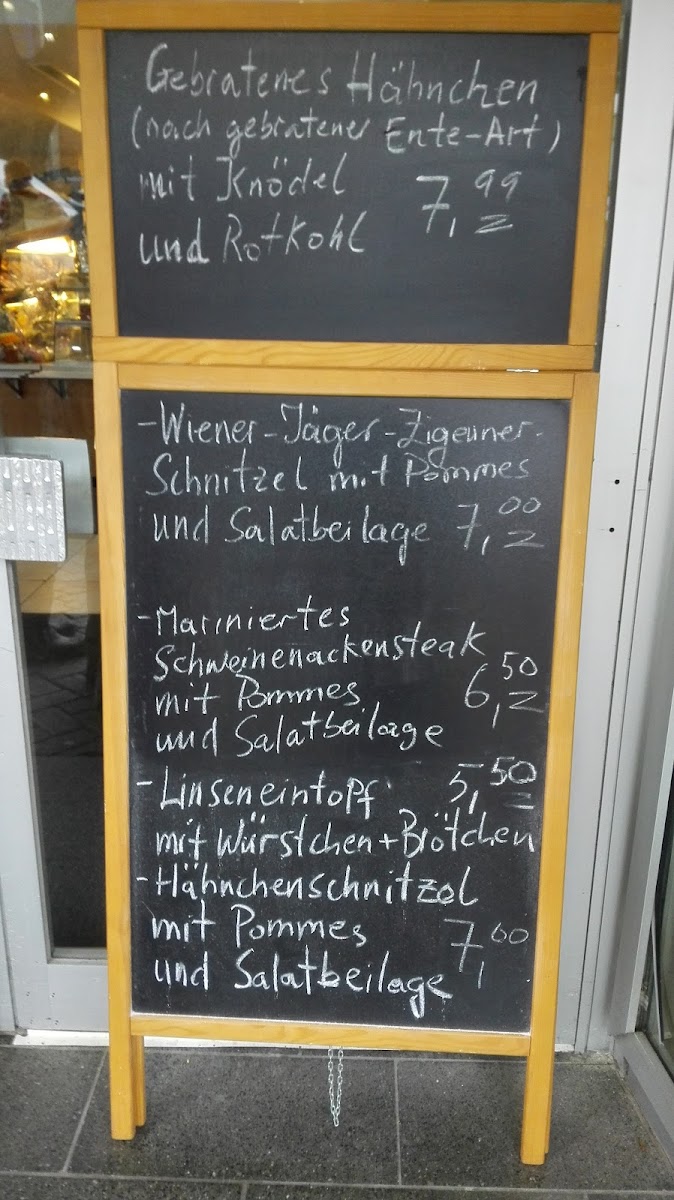 Gebratenes Hähnchen
(nach gebratener Ente-Art)
mit Knödel 7,99
und Rotkohl
-Wiener-Jäger-Zigeuner-
Schnitzel mit Pommes
und Salatbeilage 7,00
-Mariniertes
Schweinenackensteak
mit Pommes 6,50
und Salatbeilage
-Linseneintopf 5,50
mit Würstchen+Brötchen
-Hähnchenschnitzel
mit Pommes 7,00
und Salatbeilage